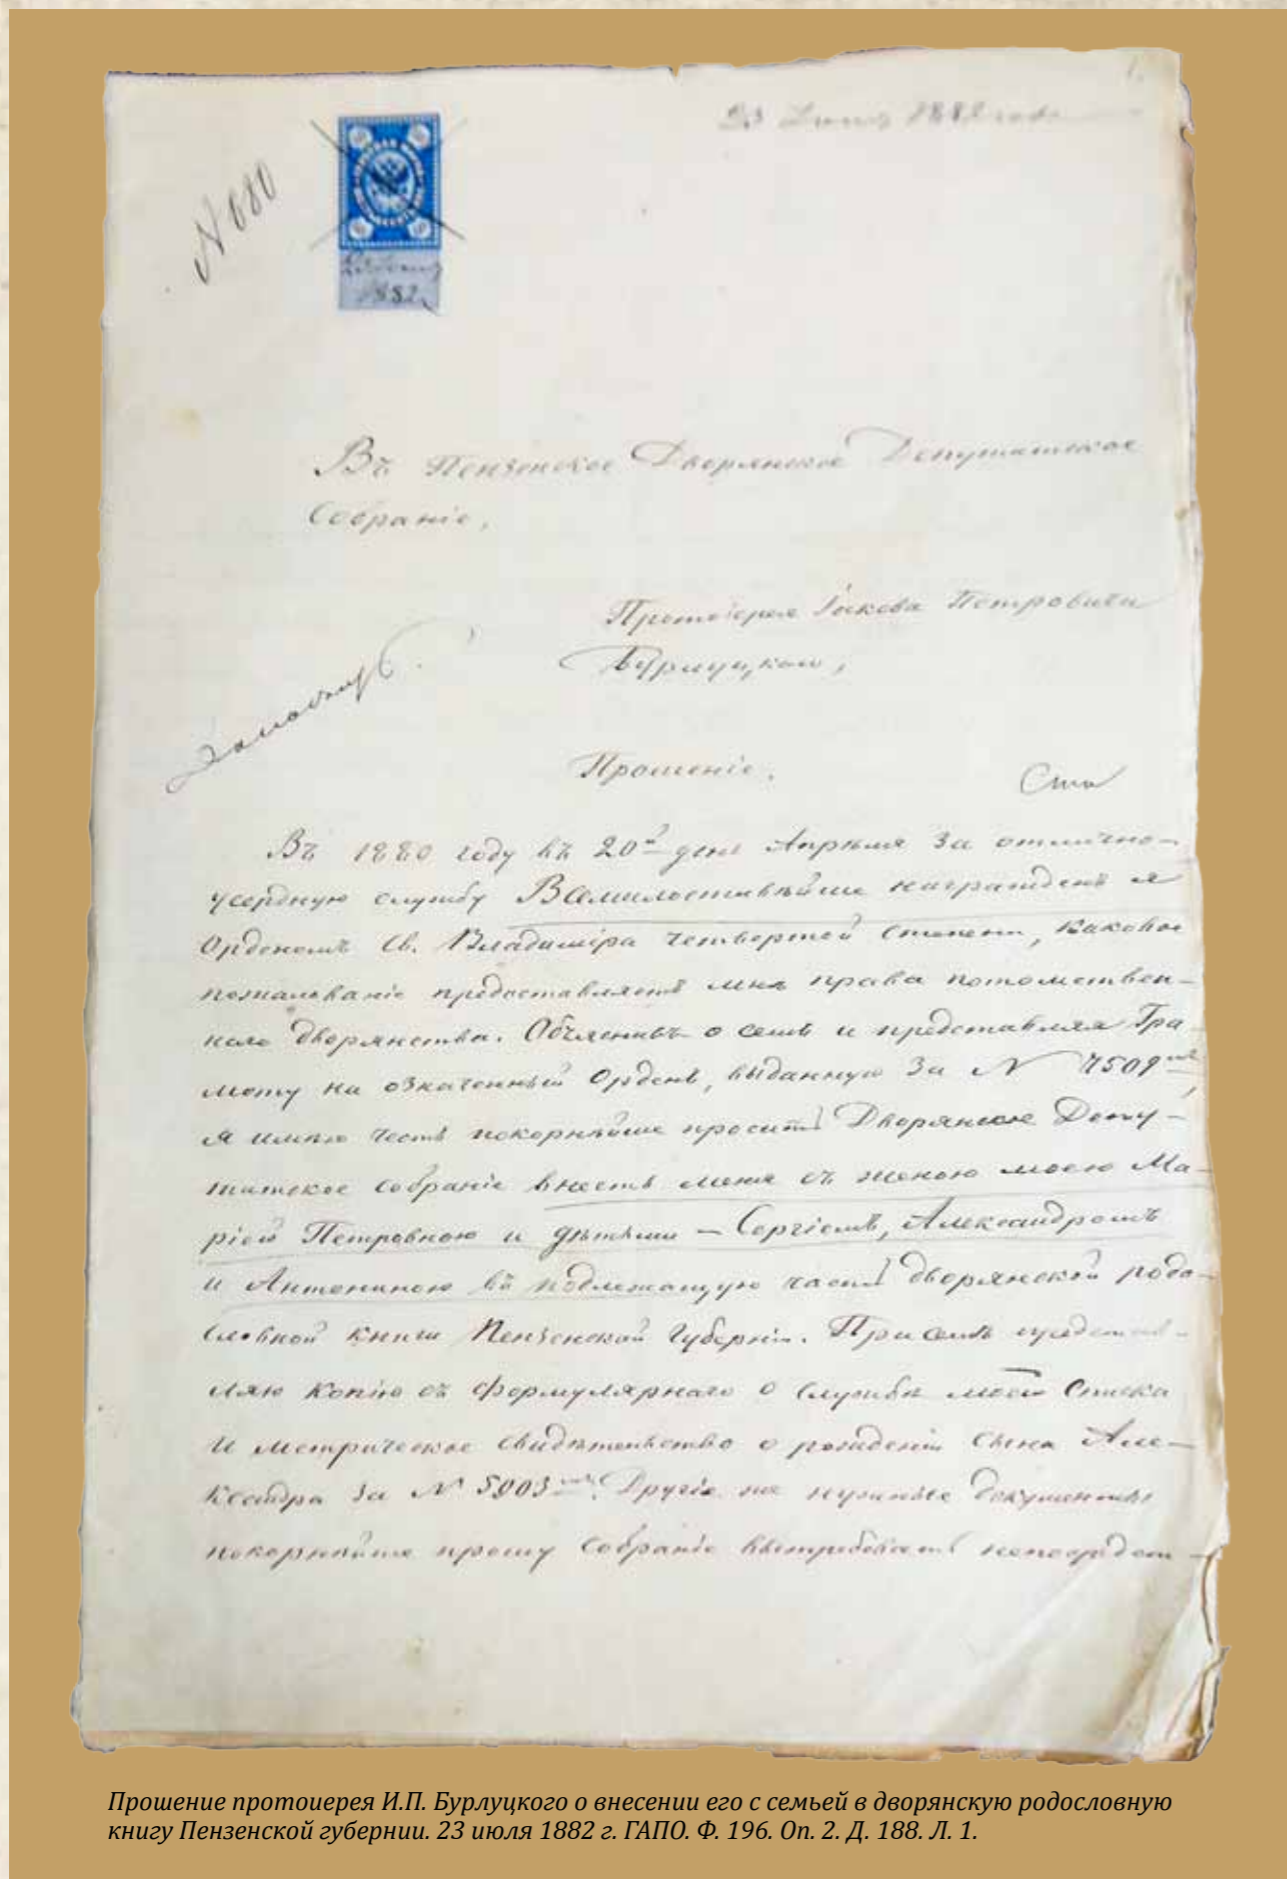 1.
23 Июля 1882 года
N 680
1882
Въ Пензенское Дворянское Депутатское
Собраніе,
Протоіерея Іакова Петровича
Бурлуцкаго,
Прошеніе.
Въ 1880 году въ 20й день Апрѣля за отлично-
усердную службу Всемилостивѣйше награжденъ я
Орденомъ Св. Владиміра четвертой степени, каковое
пожалованіе предоставляетъ мнѣ права потомствен-
наго дворянства. Объясняя о семъ и представляя Гра
моту на означенный Орденъ, выданную за N 7509
я имѣю честь покорнѣйше просить Дворянское Депу-
татское собраніе внесть меня съ женою моею Ма-
ріей Петровною и дѣтьми – Сергіемъ, Александромъ
и Антониною въ подлежащую часть дворянской родо-
словной книги Пензенской Губерніи. При семъ представ-
ляю копію съ формулярнаго о службѣ моей списка
и метрическое свидѣтельство о рожденіи сына Але-
ксандра за N 5903. Другіе же нужные документы
покорнѣйше прошу Собраніе вытребовать непосредст-
Прошение протоиерея И.П. Бурлуцкого о внесении его с семьей в дворянскую родословную
книгу Пензенской губернии. 23 июля 1882 г. ГАПО. Ф. 196. Оп. 2. Д. 188. Л. 1.